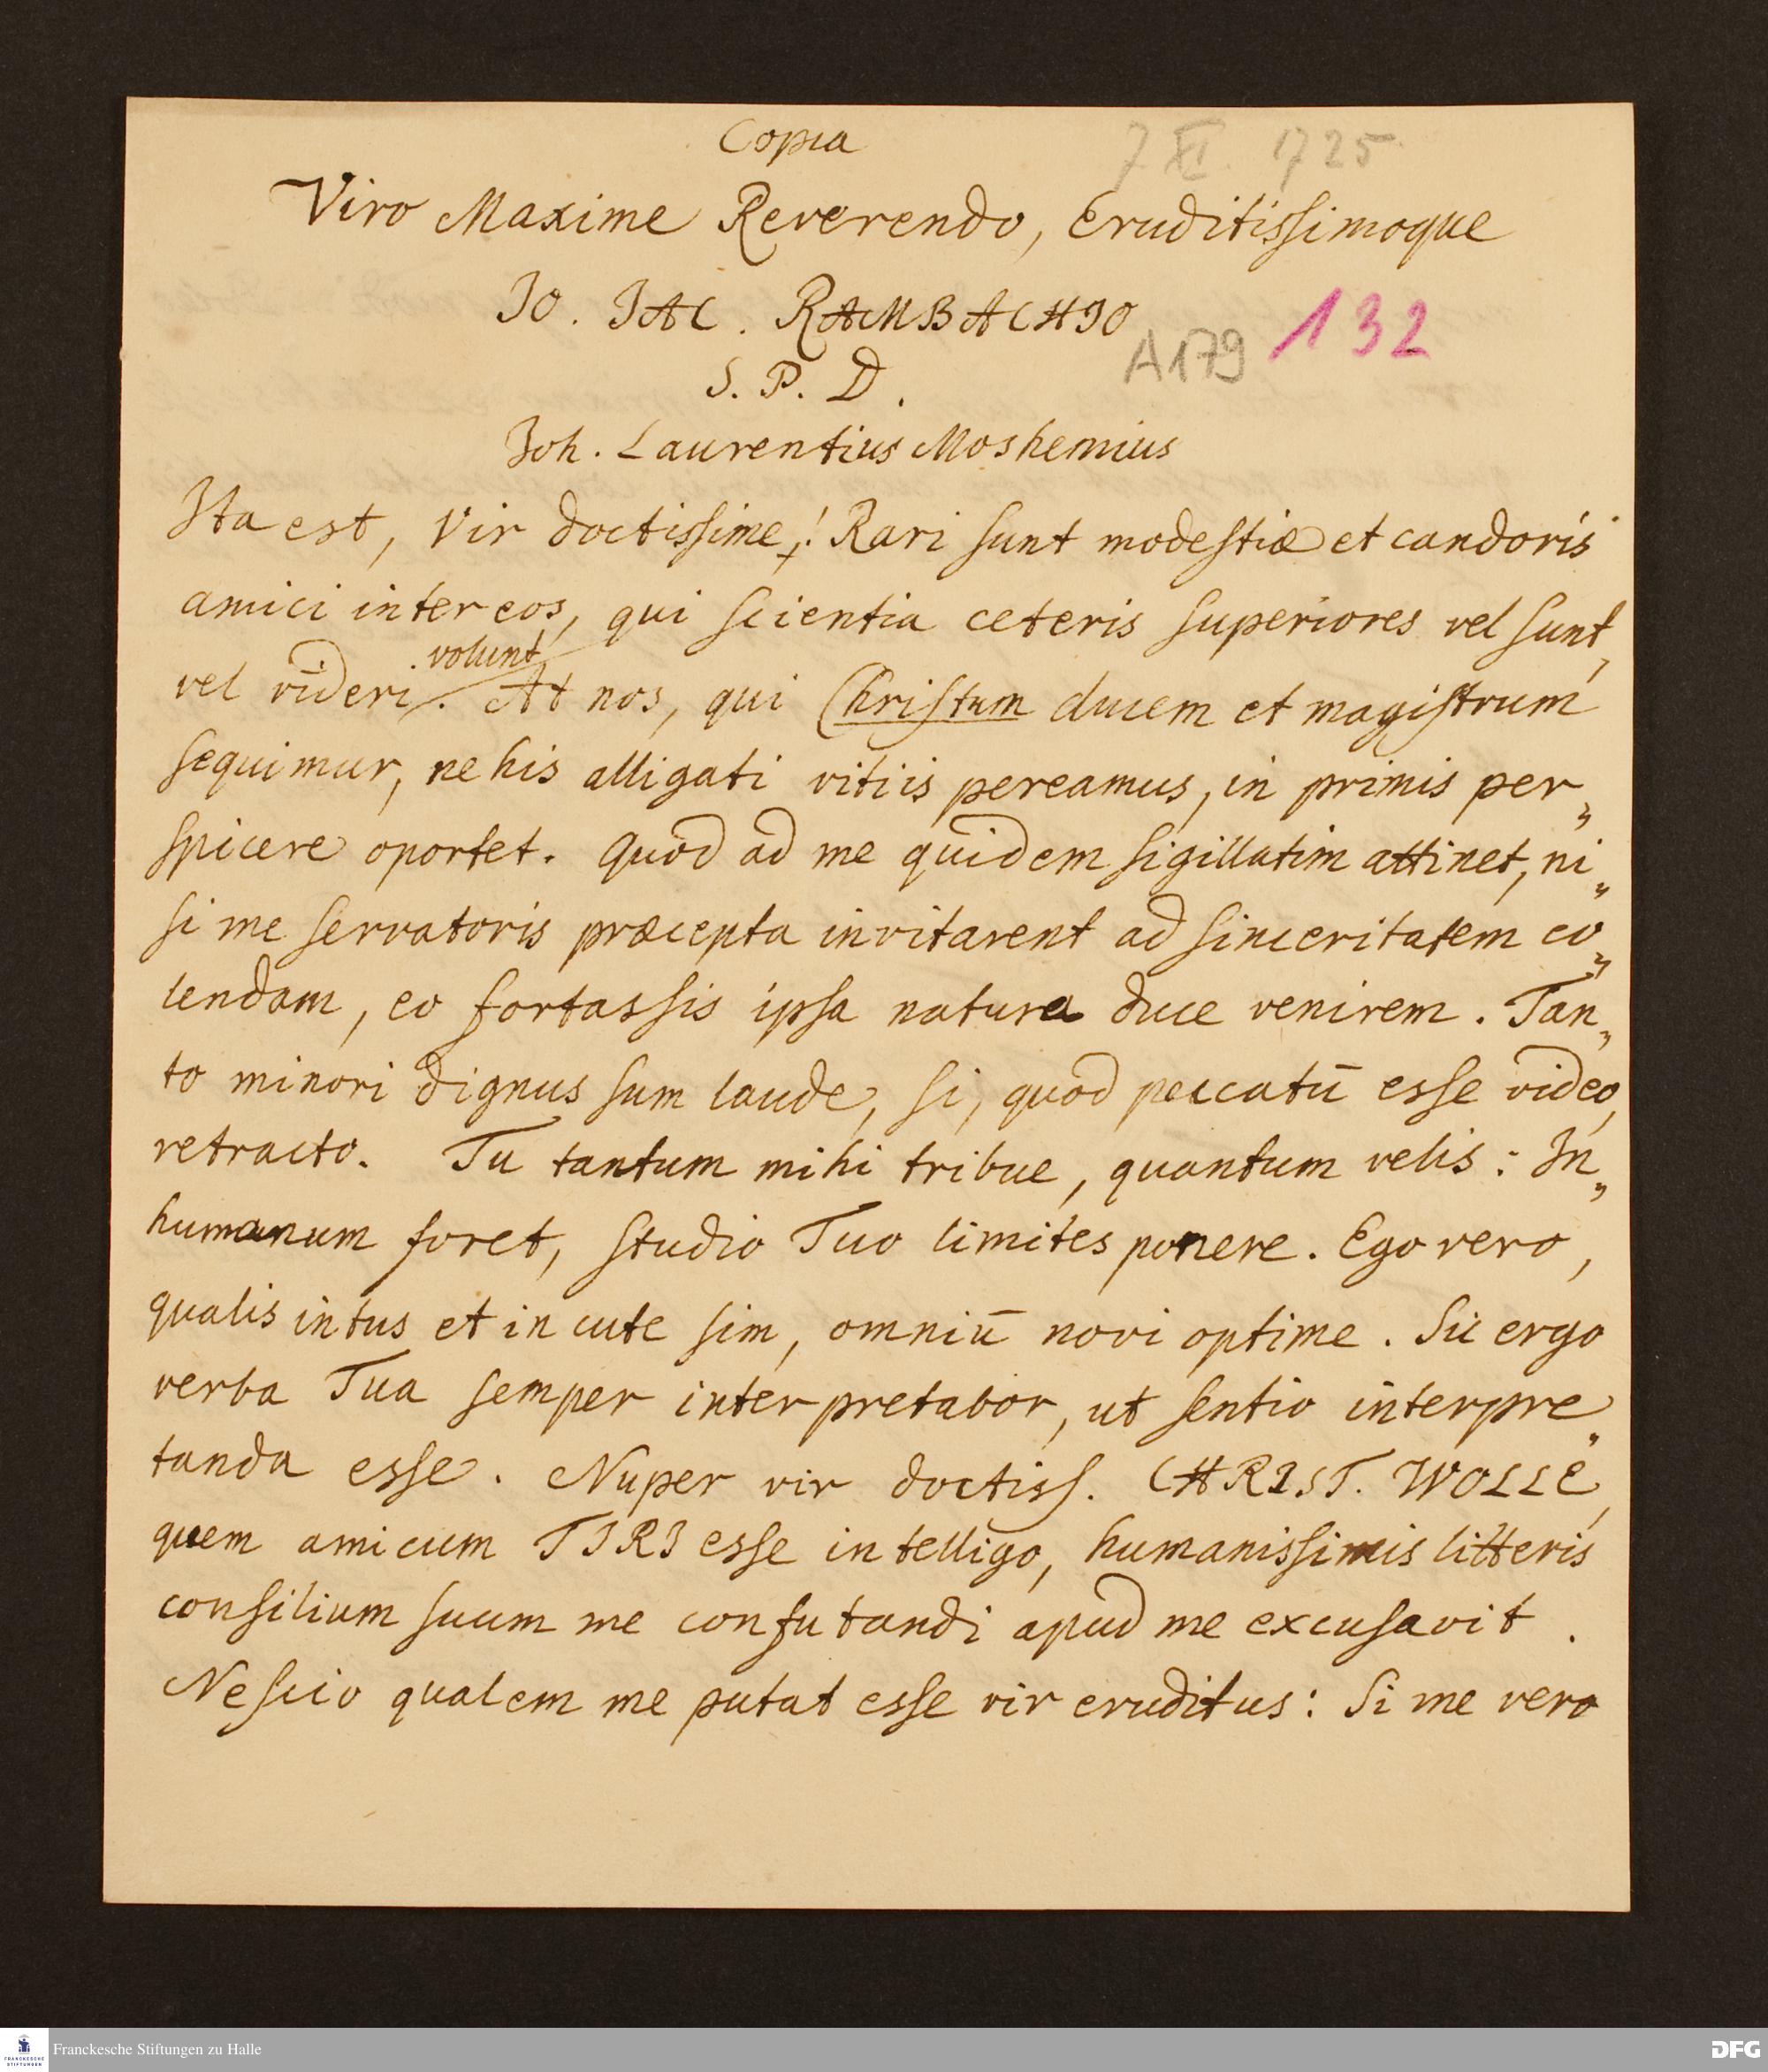 Copia
7. XI. 1725
Viro Maxime Reverendo, Eruditissimoque
IO. IAC. RAMBACHIO
A179 132
S. P. D.
Joh. Laurentius Moshemius
Ita est, Vir doctissime! Rari sunt modestiæ et candoris
amici inter eos, qui scientia ceteris superiores vel sunt,
vel videri volunt. At nos, qui Christum ducem et magistrum
sequimur, ne his alligati vitiis pereamus, in primis per„
spicere oportet. Quod ad me quidem sigillatim attinet, ni„
si me servatoris præcepta invitarent ad sinceritatem co„
lendam, eo fortassis ipsa natura duce venirem. Tan„
to minori dignus sum laude, si, quod peccatū esse video,
retracto. Tu tantum mihi tribue, quantum velis: In„
humanum foret, studio Tuo limites ponere. Ego vero,
qualis intus et in cute sim, omniū novi optime. Sic ergo
verba Tua semper interpretabor, ut sentio interpre„
tanda esse. Nuper vir doctiss. CHRIST. WOLLE,
quem amicum TIBI esse intelligo, humanissimis litteris
consilium suum me confutandi apud me excusavit.
Nescio qualem me putat esse vir eruditus: Si me vero
Franckesche Stiftungen zu Halle
FRANCKESCHE STIFTUNGEN
DFG